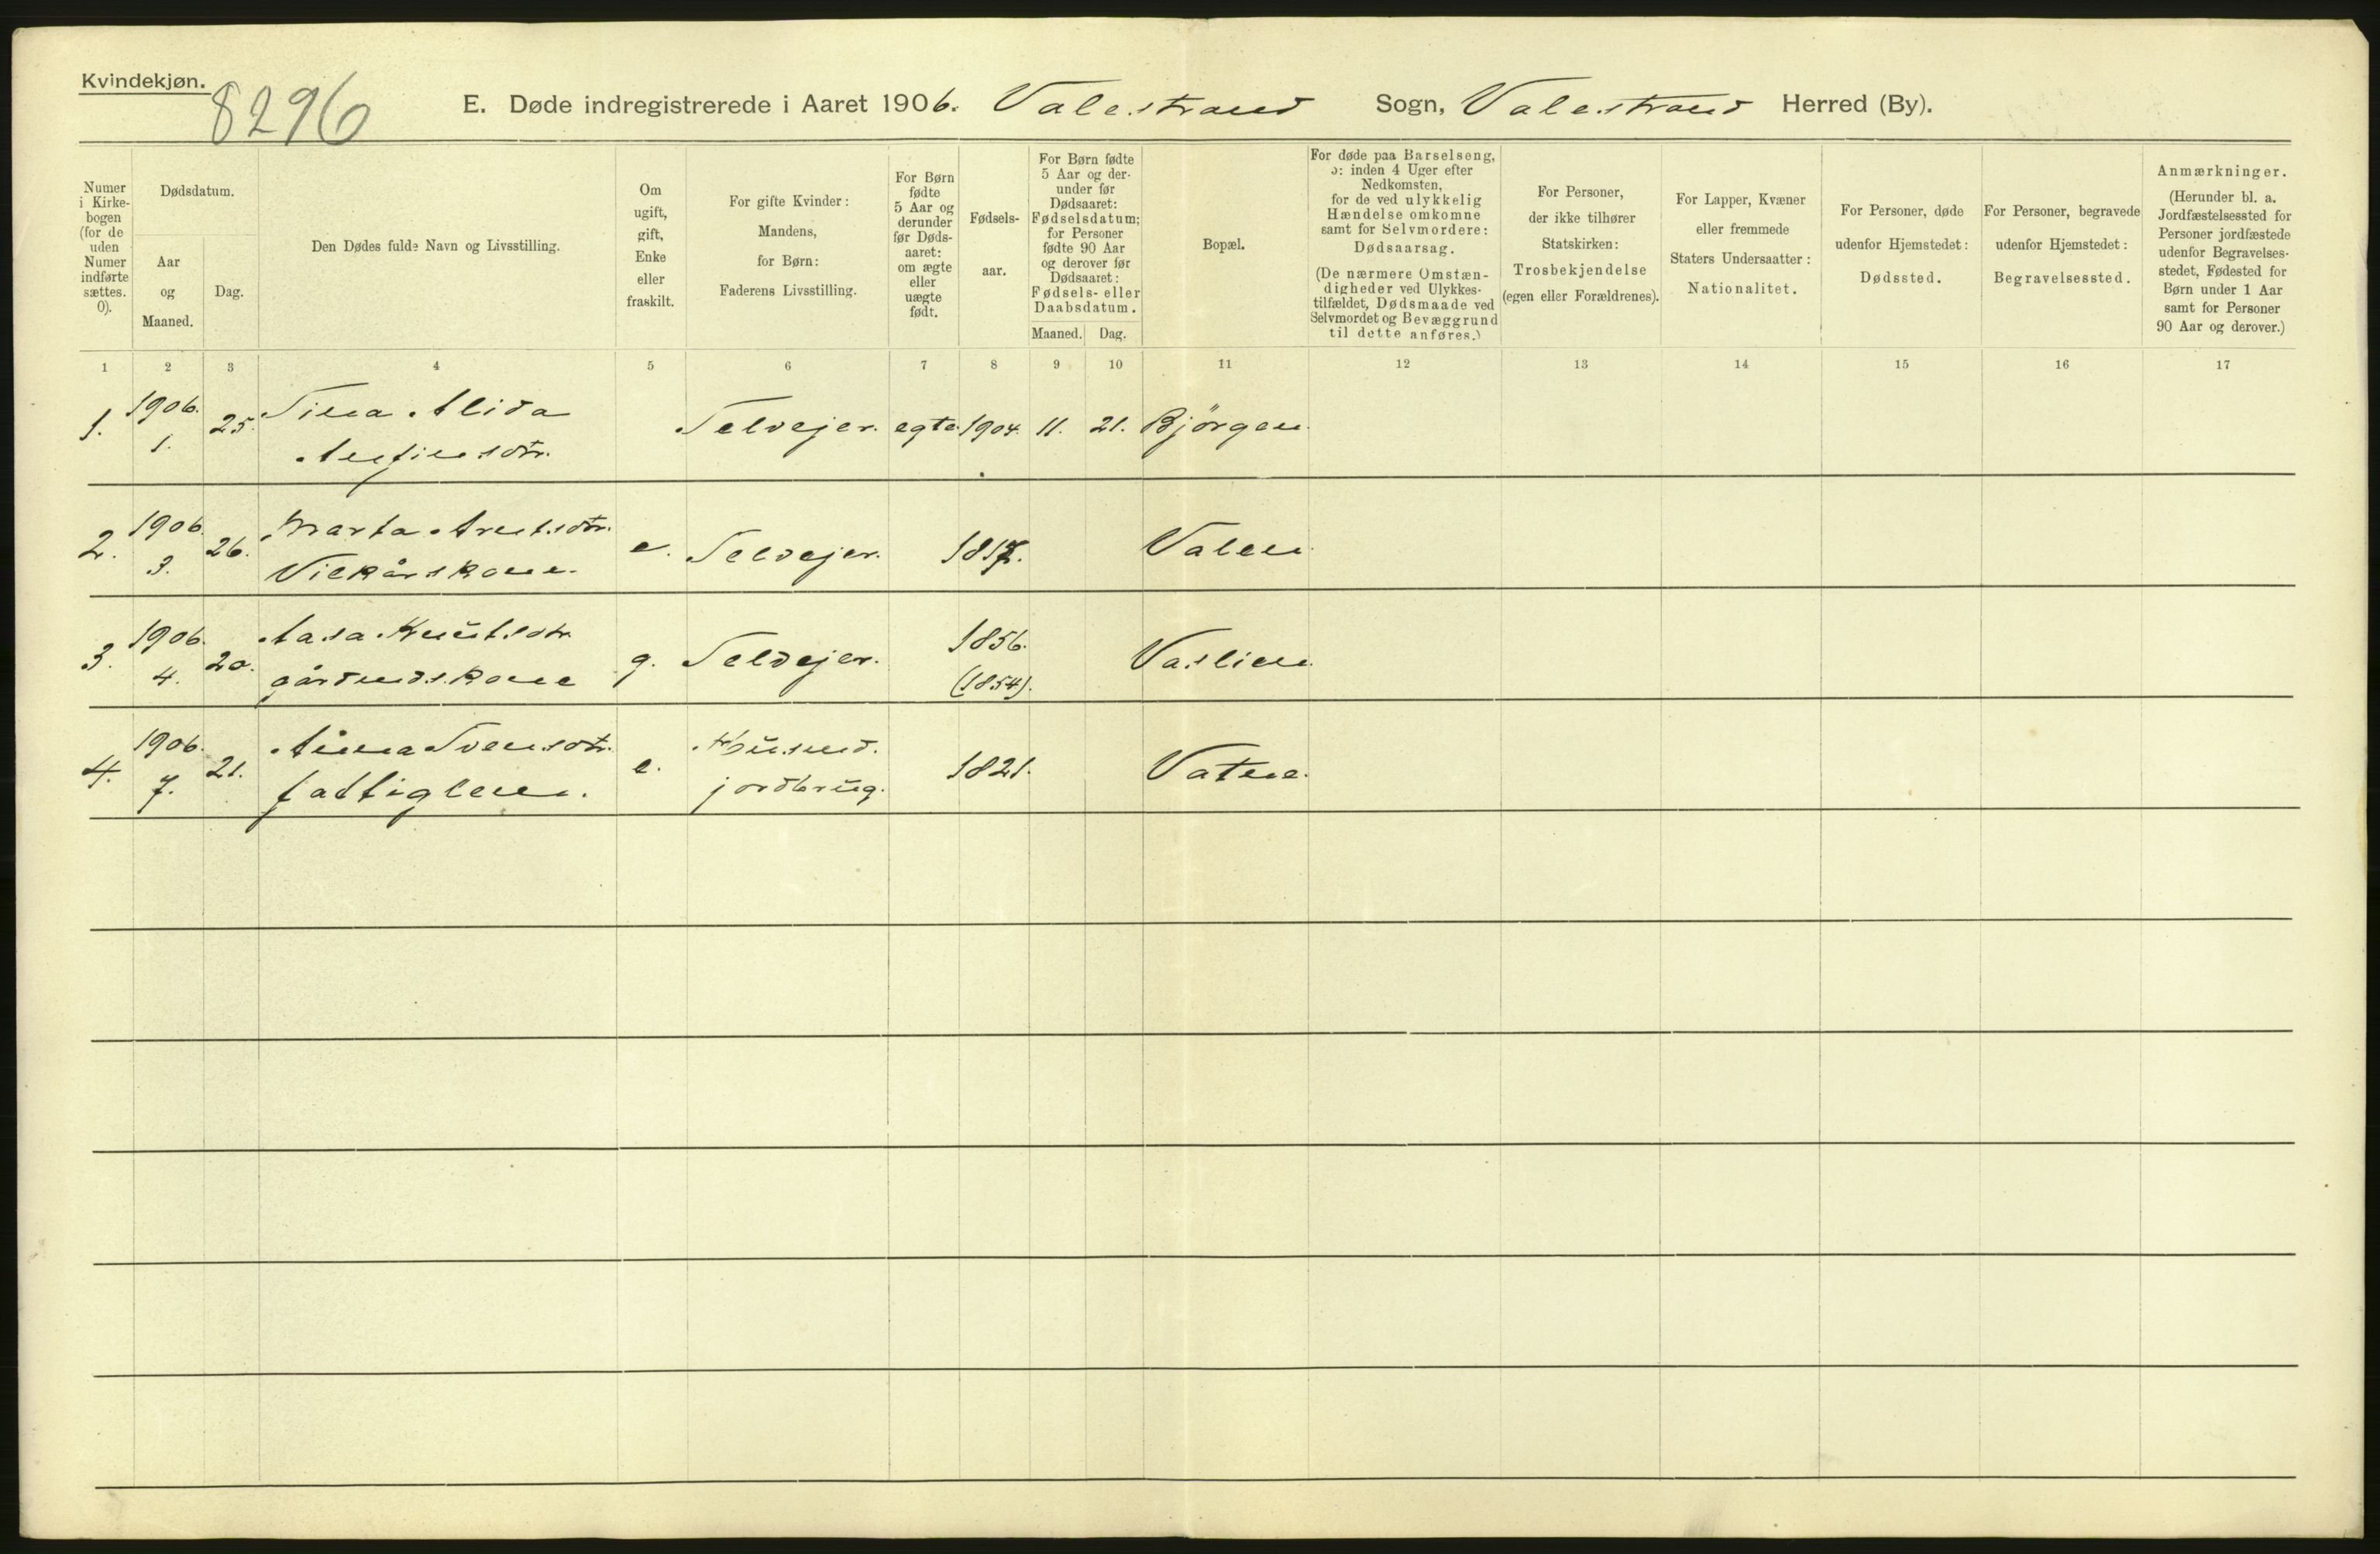 Kvindekjøn.
8296
E. Døde indregistrerede i Aaret 1906. Valestrand Sogn, Valestrand Herred (By).
Numer
i Kirke-
bogen
(for de
uden
Numer
indførte
sættes.
0).
Dødsdatum.
Aar
og
Maaned.
Dag.
Den Dødes fulde Navn og Livsstilling.
Om
ugift,
gift,
Enke
eller
fraskilt.
For gifte Kvinder:
Mandens,
for Børn:
Faderens Livsstilling.
For Børn
fødte
5 Aar og
derunder
før Døds-
aaret:
om ægte
eller
uægte
født.
Fødsels-
aar.
For Børn fødte
5 Aar og der-
under før
Dødsaaret:
Fødselsdatum;
for Personer
fødte 90 Aar
og derover før
Dødsaaret:
Fødsels- eller
Daabsdatum.
Maaned. Dag.
Bopæl.
For døde paa Barselseng,
ɔ: inden 4 Uger efter
Nedkomsten,
for de ved ulykkelig
Hændelse omkomne
samt for Selvmordere:
Dødsaarsag.
(De nærmere Omstæn-
digheder ved Ulykkes-
tilfældet, Dødsmaade ved
Selvmordet og Bevæggrund
til dette anføres.)
For Personer,
der ikke tilhører
Statskirken:
Trosbekjendelse
(egen eller Forældrenes).
For Lapper, Kvæner
eller fremmede
Staters Undersaatter:
Nationalitet.
For Personer, døde
udenfor Hjemstedet:
Dødssted.
For Personer, begravede
udenfor Hjemstedet:
Begravelsessted.
Anmærkninger.
(Herunder bl. a.
Jordfæstelsessted for
Personer jordfæstede
udenfor Begravelses-
stedet, Fødested for
Børn under 1 Aar
samt for Personer
90 Aar og derover.)
1 2 3 4 5 6 7 8 9 10 11 12 13 14 15 16 17
1. 1906. 1. 25. Tina Alida
Anfinsdtr. Selvejer. egte 1904. 11. 21. Björgen.
2. 1906. 3. 26. Marta Arntsdtr.
Vilkårskone. e. Selvejer. Valen.
3. 1906. 4. 20. Aasa Knutsdtr.
gårdmdskone g. Selvejer. 1856.
(1854). Vaslien.
4. 1906. 7. 21. Anna Svensdtr.
fattiglem. e. Husmd.
jordbrug. 1821. Vatne.